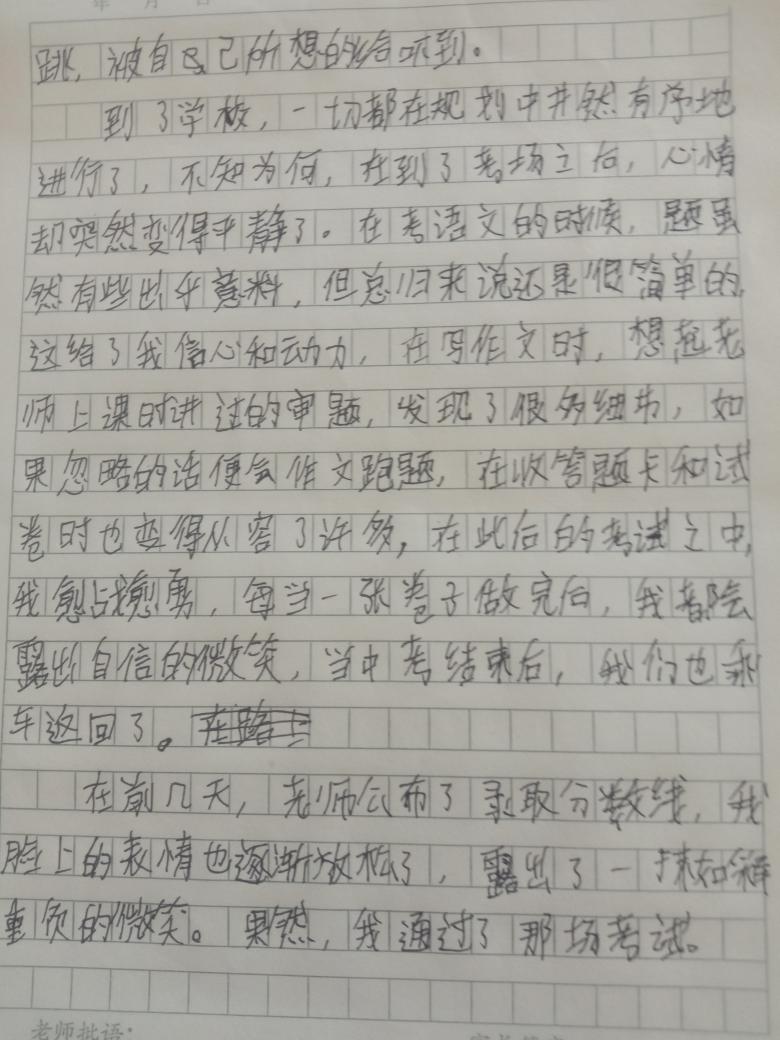 年 月 日
跳，被自己所想的给吓到。
到了学校，一切都在规划中井然有序地
进行了，不知为何，在到了考场之后，心情
却突然变得平静了。在考语文的时候，题虽
然有些出乎意料，但总归来说还是很简单的，
这给了我信心和动力，在写作文时，想起老
师上课时讲过的审题，发现了很多细节，如
果忽略的话便会作文跑题，在收答题卡和试
卷时也变得从容了许多，在此后的考试之中，
我愈战愈勇，每当一张卷子做完后，我都会
露出自信的微笑，当中考结束后，我们也乘
车返回了。在路上
在前几天，老师公布了录取分数线，我
脸上的表情也逐渐放松了，露出了一抹如释
重负的微笑。果然，我通过了那场考试。
老师批语：